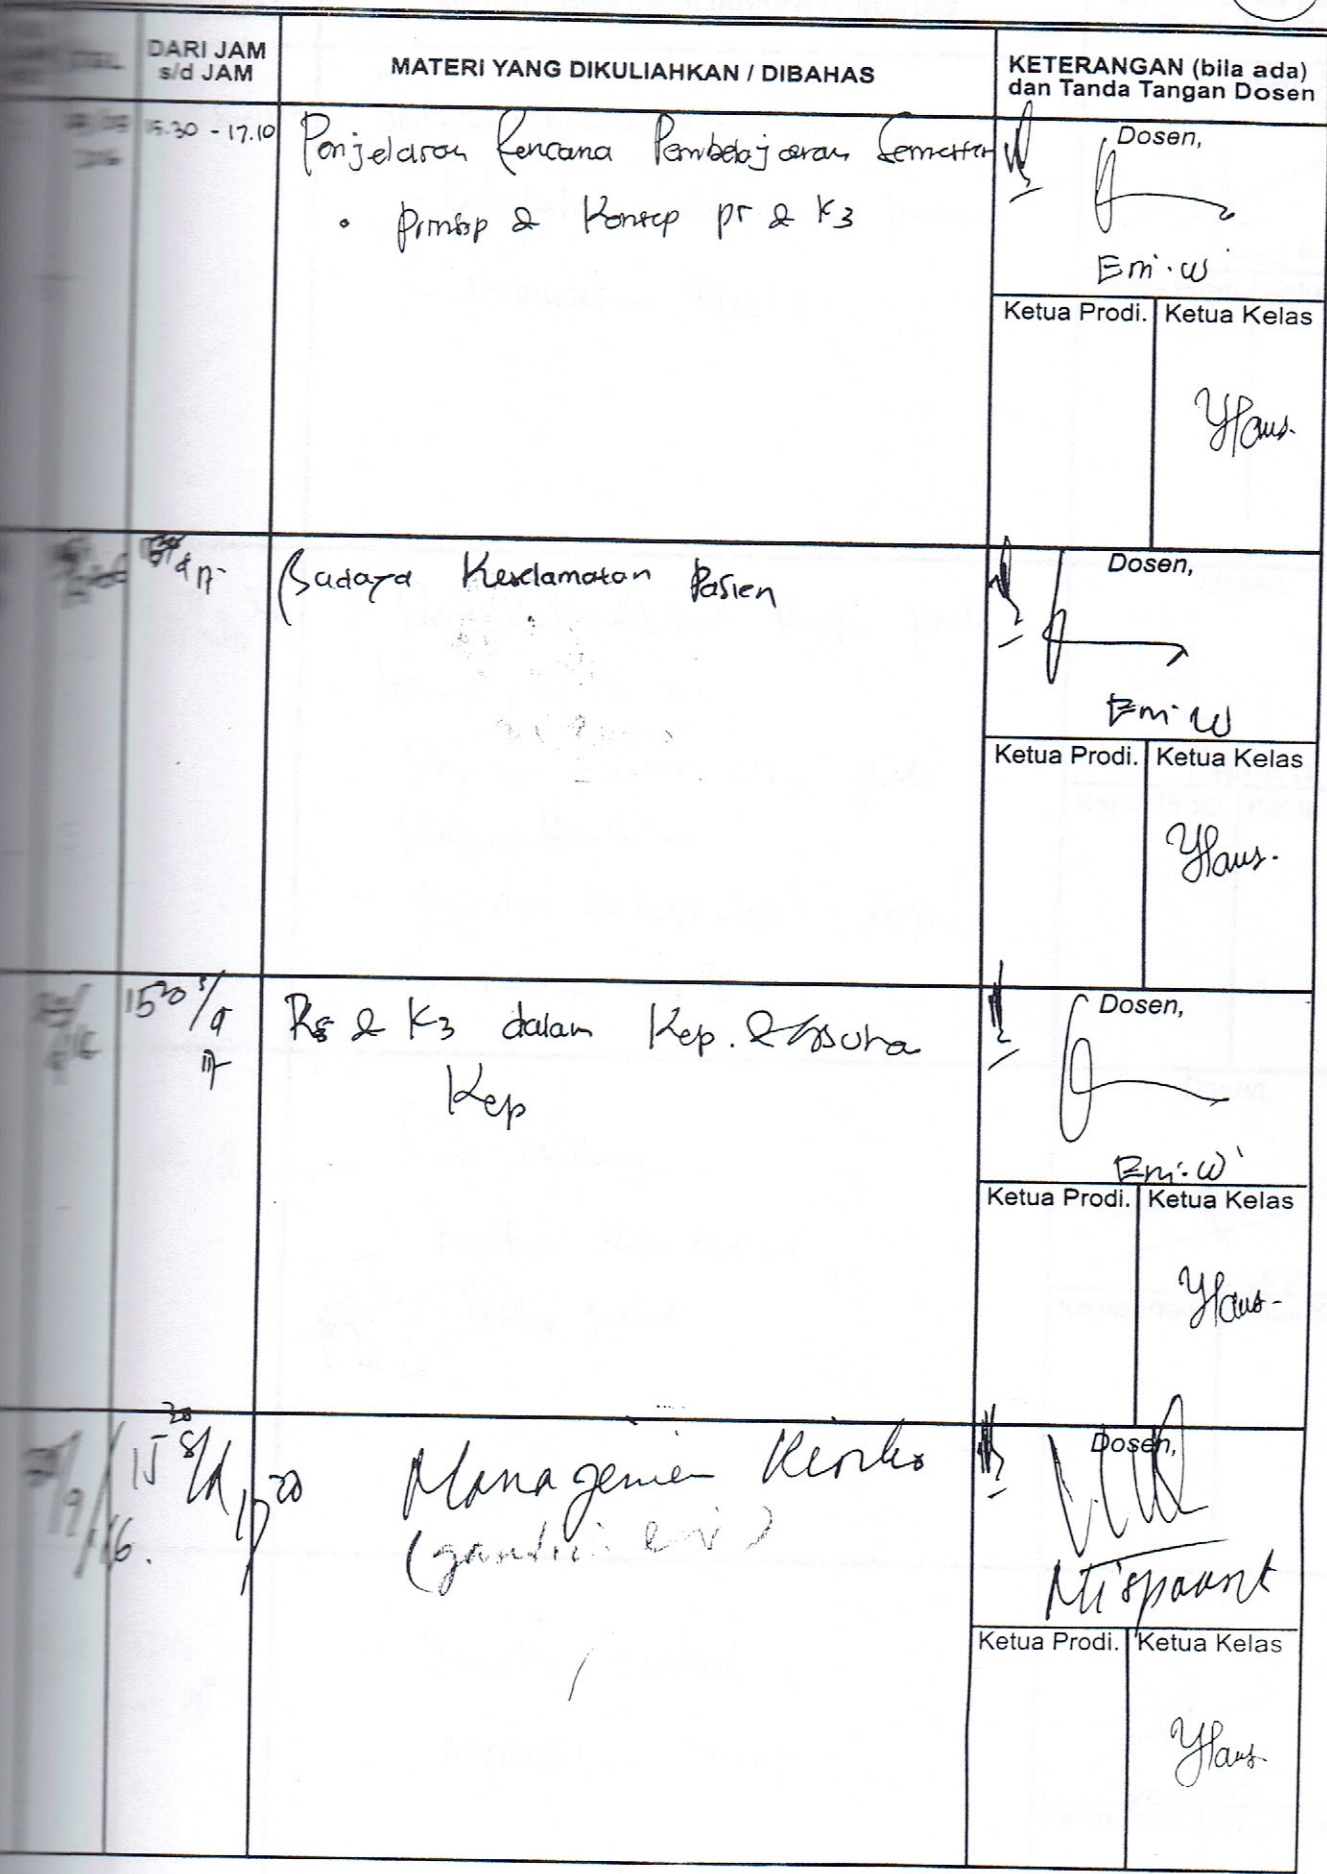 TGL
DARI JAM
s/d JAM
MATERI YANG DIKULIAHKAN / DIBAHAS
KETERANGAN (bila ada)
dan Tanda Tangan Dosen
15.30 - 17.10
Penjelasan Rencana Pembelajaran Semester
• Prinsip & Konsep ps & K3
Dosen,
Eni. W
Ketua Prodi.
Ketua Kelas
Budaya Keselamatan Pasien
Dosen,
Eni. W
Ketua Prodi.
Ketua Kelas
15 30 s/d
17
Ps & K3 dalam Kep. & Asuha
Kep
Dosen,
Eni. W
Ketua Prodi.
Ketua Kelas
/9/16.
15 30 s/d 17 20
Managemen Resiko
Dosen,
Ketua Prodi.
Ketua Kelas